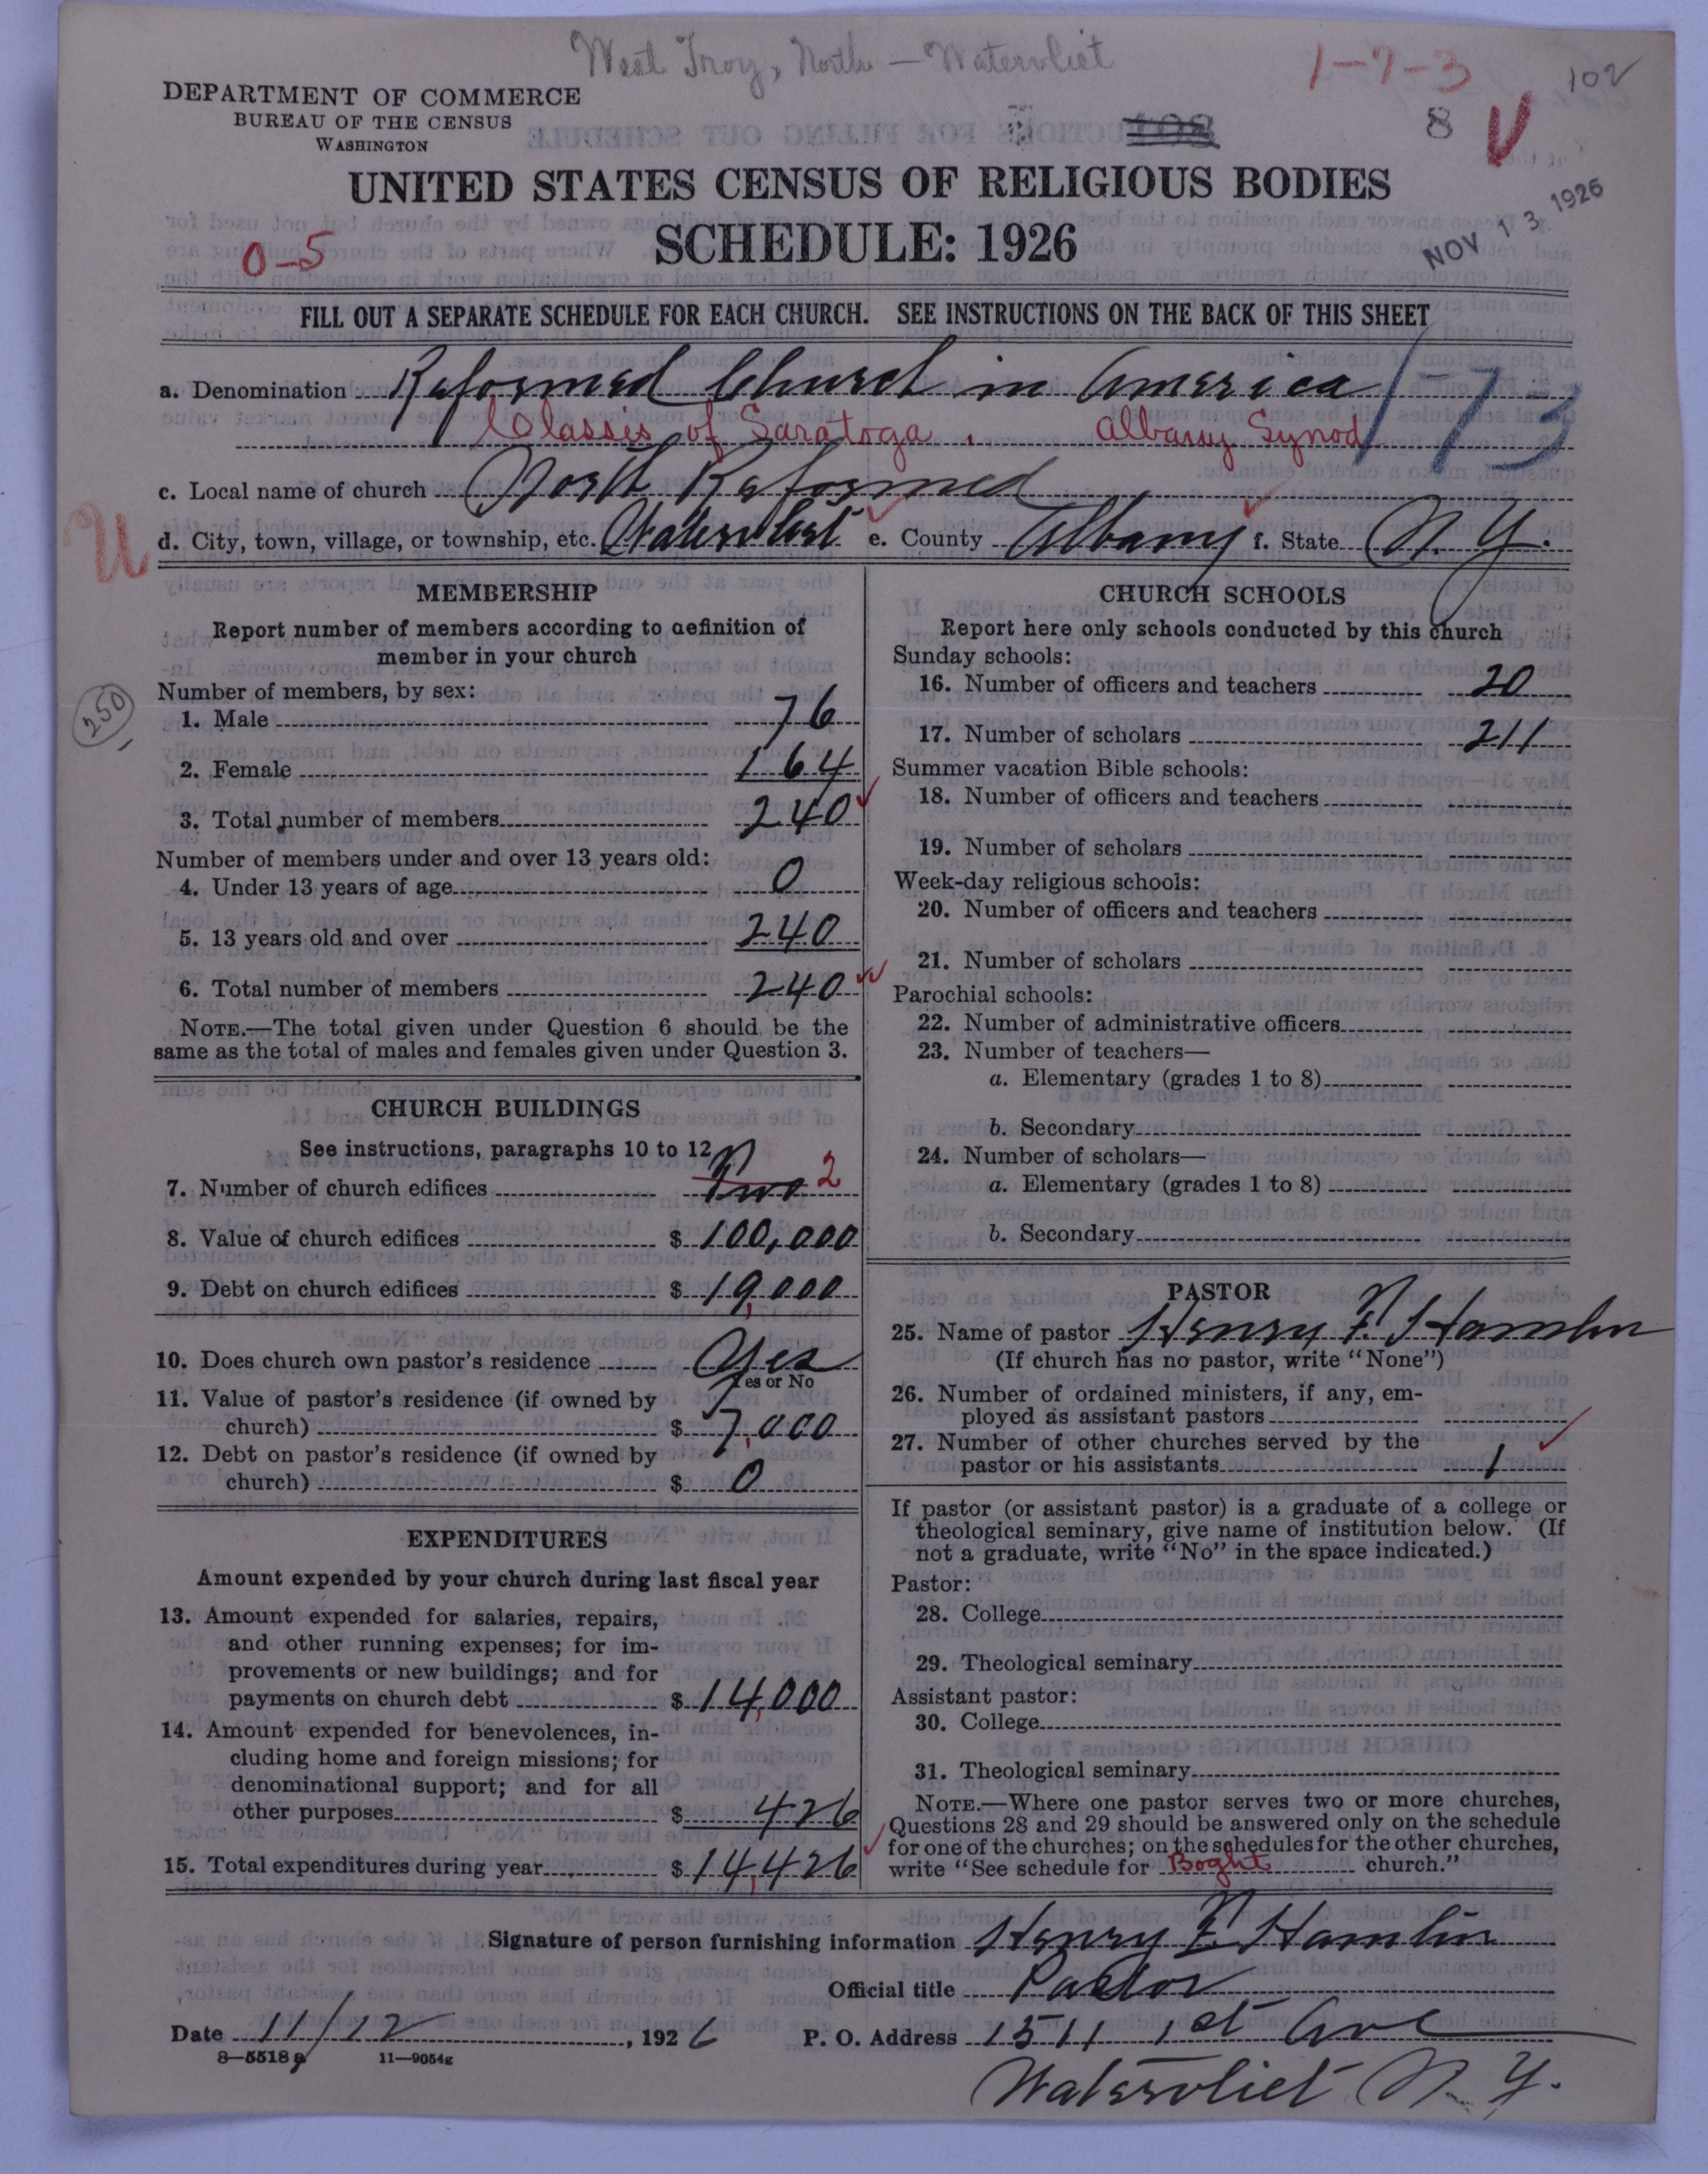 West Troy, North — Watervliet
1-7-3
102
DEPARTMENT OF COMMERCE
BUREAU OF THE CENSUS
WASHINGTON
8
V
UNITED STATES CENSUS OF RELIGIOUS BODIES
SCHEDULE: 1926
NOV 13 1926
0-5
FILL OUT A SEPARATE SCHEDULE FOR EACH CHURCH. SEE INSTRUCTIONS ON THE BACK OF THIS SHEET
a. Denomination Reformed Church in America
1-73
Classis of Saratoga, Albany Synod
c. Local name of church North Reformed
U
d. City, town, village, or township, etc. Watervliet e. County Albany f. State N. Y.
MEMBERSHIP
Report number of members according to definition of
member in your church
Number of members, by sex:
250
1. Male 76
2. Female 164
3. Total number of members 240
Number of members under and over 13 years old:
4. Under 13 years of age 0
5. 13 years old and over 240
6. Total number of members 240
NOTE.—The total given under Question 6 should be the
same as the total of males and females given under Question 3.
CHURCH BUILDINGS
See instructions, paragraphs 10 to 12
7. Number of church edifices Two 2
8. Value of church edifices $ 100,000
9. Debt on church edifices $ 19,000
10. Does church own pastor's residence Yes
Yes or No
11. Value of pastor's residence (if owned by
church) $ 7,000
12. Debt on pastor's residence (if owned by
church) $ 0
EXPENDITURES
Amount expended by your church during last fiscal year
13. Amount expended for salaries, repairs,
and other running expenses; for im-
provements or new buildings; and for
payments on church debt $ 14,000
14. Amount expended for benevolences, in-
cluding home and foreign missions; for
denominational support; and for all
other purposes $ 426
15. Total expenditures during year $ 14,426
CHURCH SCHOOLS
Report here only schools conducted by this church
Sunday schools:
16. Number of officers and teachers 20
17. Number of scholars 211
Summer vacation Bible schools:
18. Number of officers and teachers
19. Number of scholars
Week-day religious schools:
20. Number of officers and teachers
21. Number of scholars
Parochial schools:
22. Number of administrative officers
23. Number of teachers—
a. Elementary (grades 1 to 8)
b. Secondary
24. Number of scholars—
a. Elementary (grades 1 to 8)
b. Secondary
PASTOR
25. Name of pastor Henry F. Hamlin
(If church has no pastor, write "None")
26. Number of ordained ministers, if any, em-
ployed as assistant pastors
27. Number of other churches served by the
pastor or his assistants 1
If pastor (or assistant pastor) is a graduate of a college or
theological seminary, give name of institution below. (If
not a graduate, write "No" in the space indicated.)
Pastor:
28. College
29. Theological seminary
Assistant pastor:
30. College
31. Theological seminary
NOTE.—Where one pastor serves two or more churches,
Questions 28 and 29 should be answered only on the schedule
for one of the churches; on the schedules for the other churches,
write "See schedule for Boght church."
Signature of person furnishing information Henry F. Hamlin
Official title Pastor
Date 11/12, 1926 P. O. Address 1511 1st Ave
8—5518a 11—9054g
Watervliet N. Y.